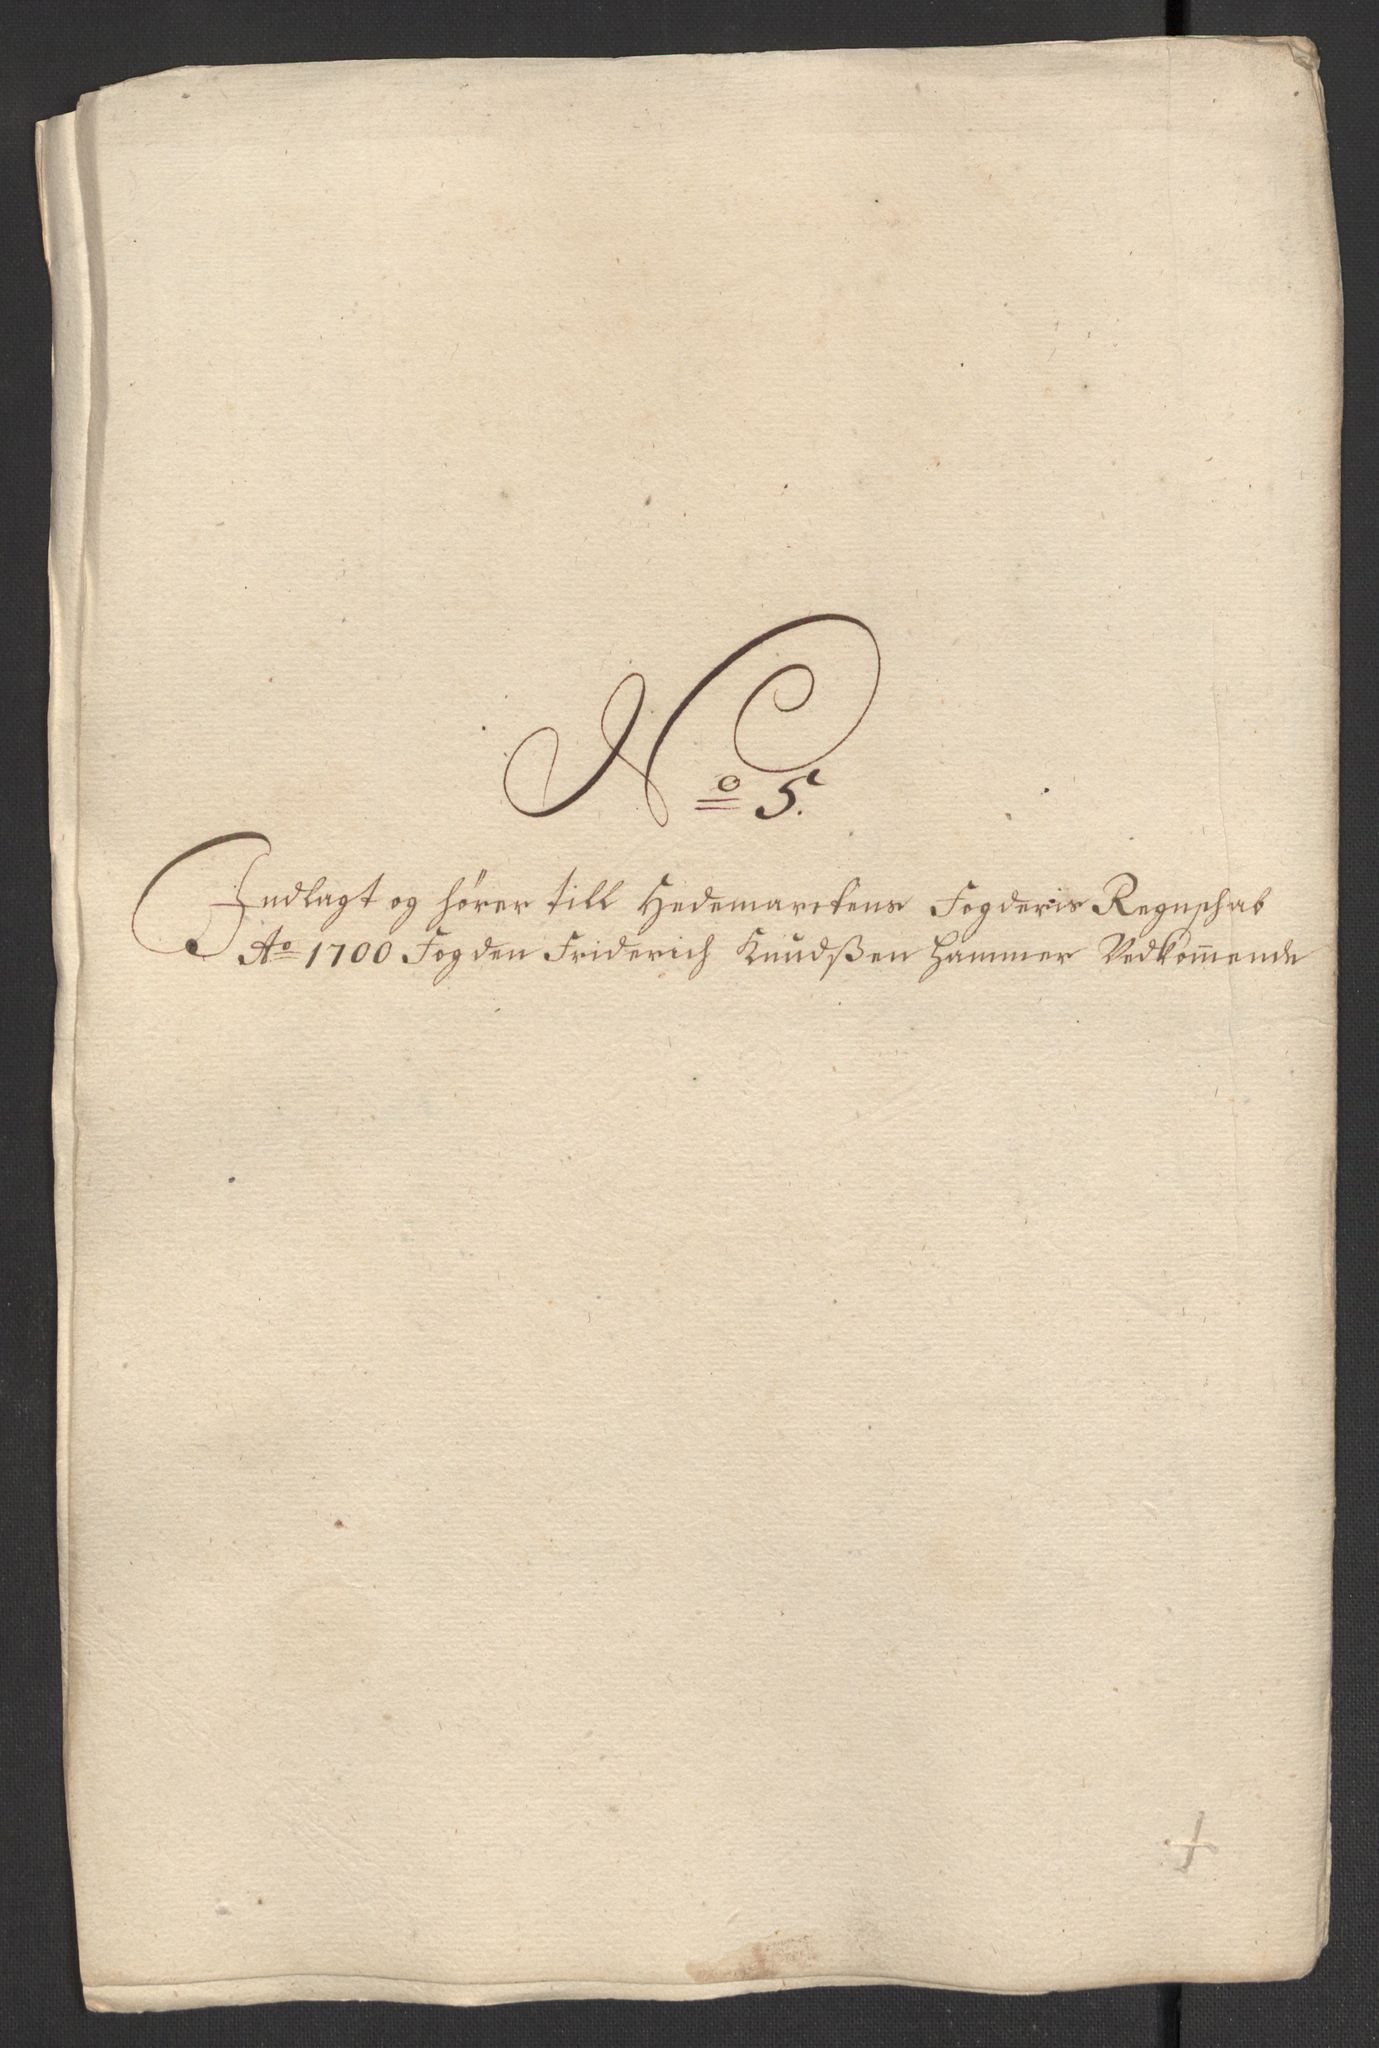 No 5.
Indlagt og hører till Hedemarckens Fogderis Regnschab
Ao 1700 Fogden Friderich Knudßen Hammer Vedkom̄ende